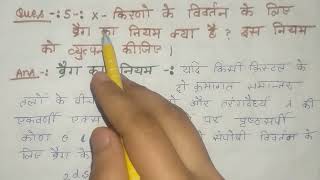 Ques -: 5 -: X- किरणो के विवर्तन के लिए
ब्रैग का नियम क्या है ? इस नियम
को व्युत्पन्न कीजिए ।
Ans -: ब्रैग का नियम -: यदि किसी क्रिस्टल के
दो क्रमागत समान्तर
तलों के बीच और तरंगदैर्ध्य λ की
एकवर्णी पर पृष्ठसर्पी
कोण θ संपोषी विवर्तन के
लिए ब्रैग के
2d